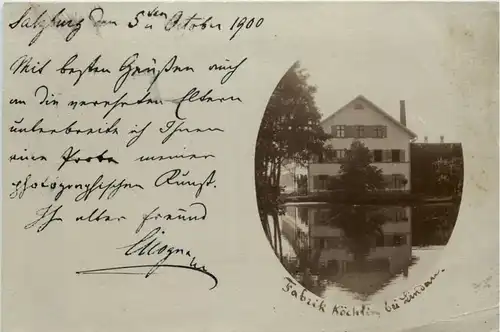 Salzburg den 5ten October 1900
Mit besten Grüßen auch
an die verehrten Eltern
unterbreite ich Ihnen
eine Probe meiner
photographischen Kunst.
Ihr alter Freund
Fabrik Köchlin bei Lindau.